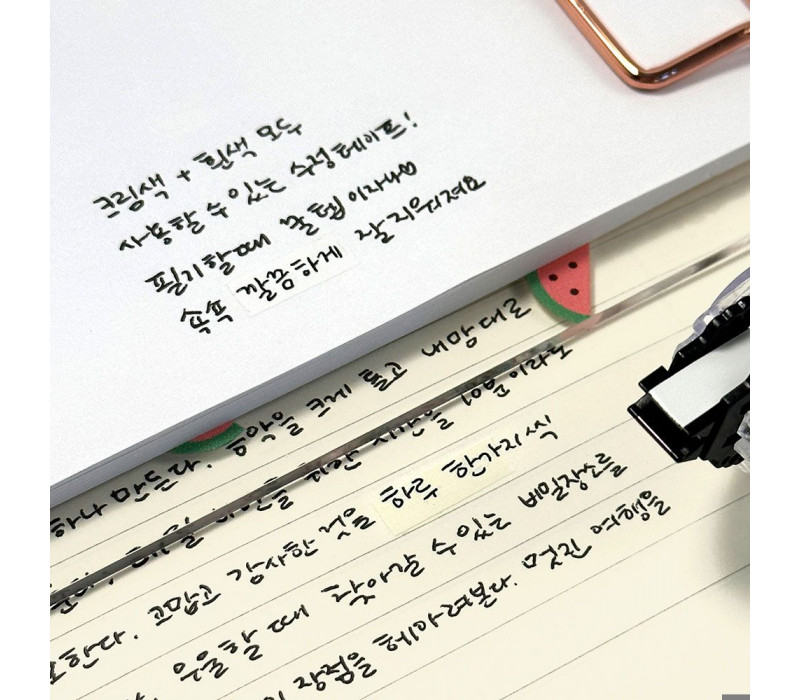 크림색 + 흰색 모두
사용할 수 있는 수정테이프!
필기할때 꿀템이자나♡
슥슥 깔끔하게 잘 지워져요
하나 만든다. 음악을 크게 틀고 내맘대로
10분이라도
고맙고 감사한 것을 하루 한가지씩
우울할 때 찾아갈 수 있는 비밀장소를
장점을 헤아려본다. 멋진 여행을